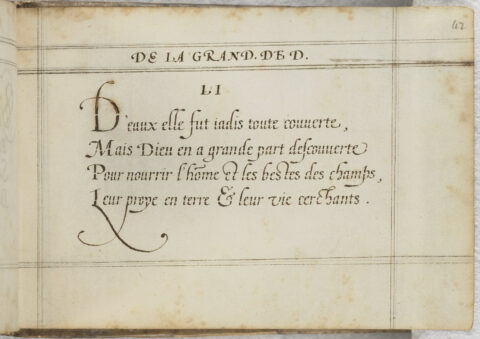 42
DE LA GRAND. DE D.
LI
D'eaux elle fut iadis toute couuerte,
Mais Dieu en a grande part descouuerte
Pour nourrir l'hõme et les bestes des champs,
Leur prope en terre & leur vie cerchants.